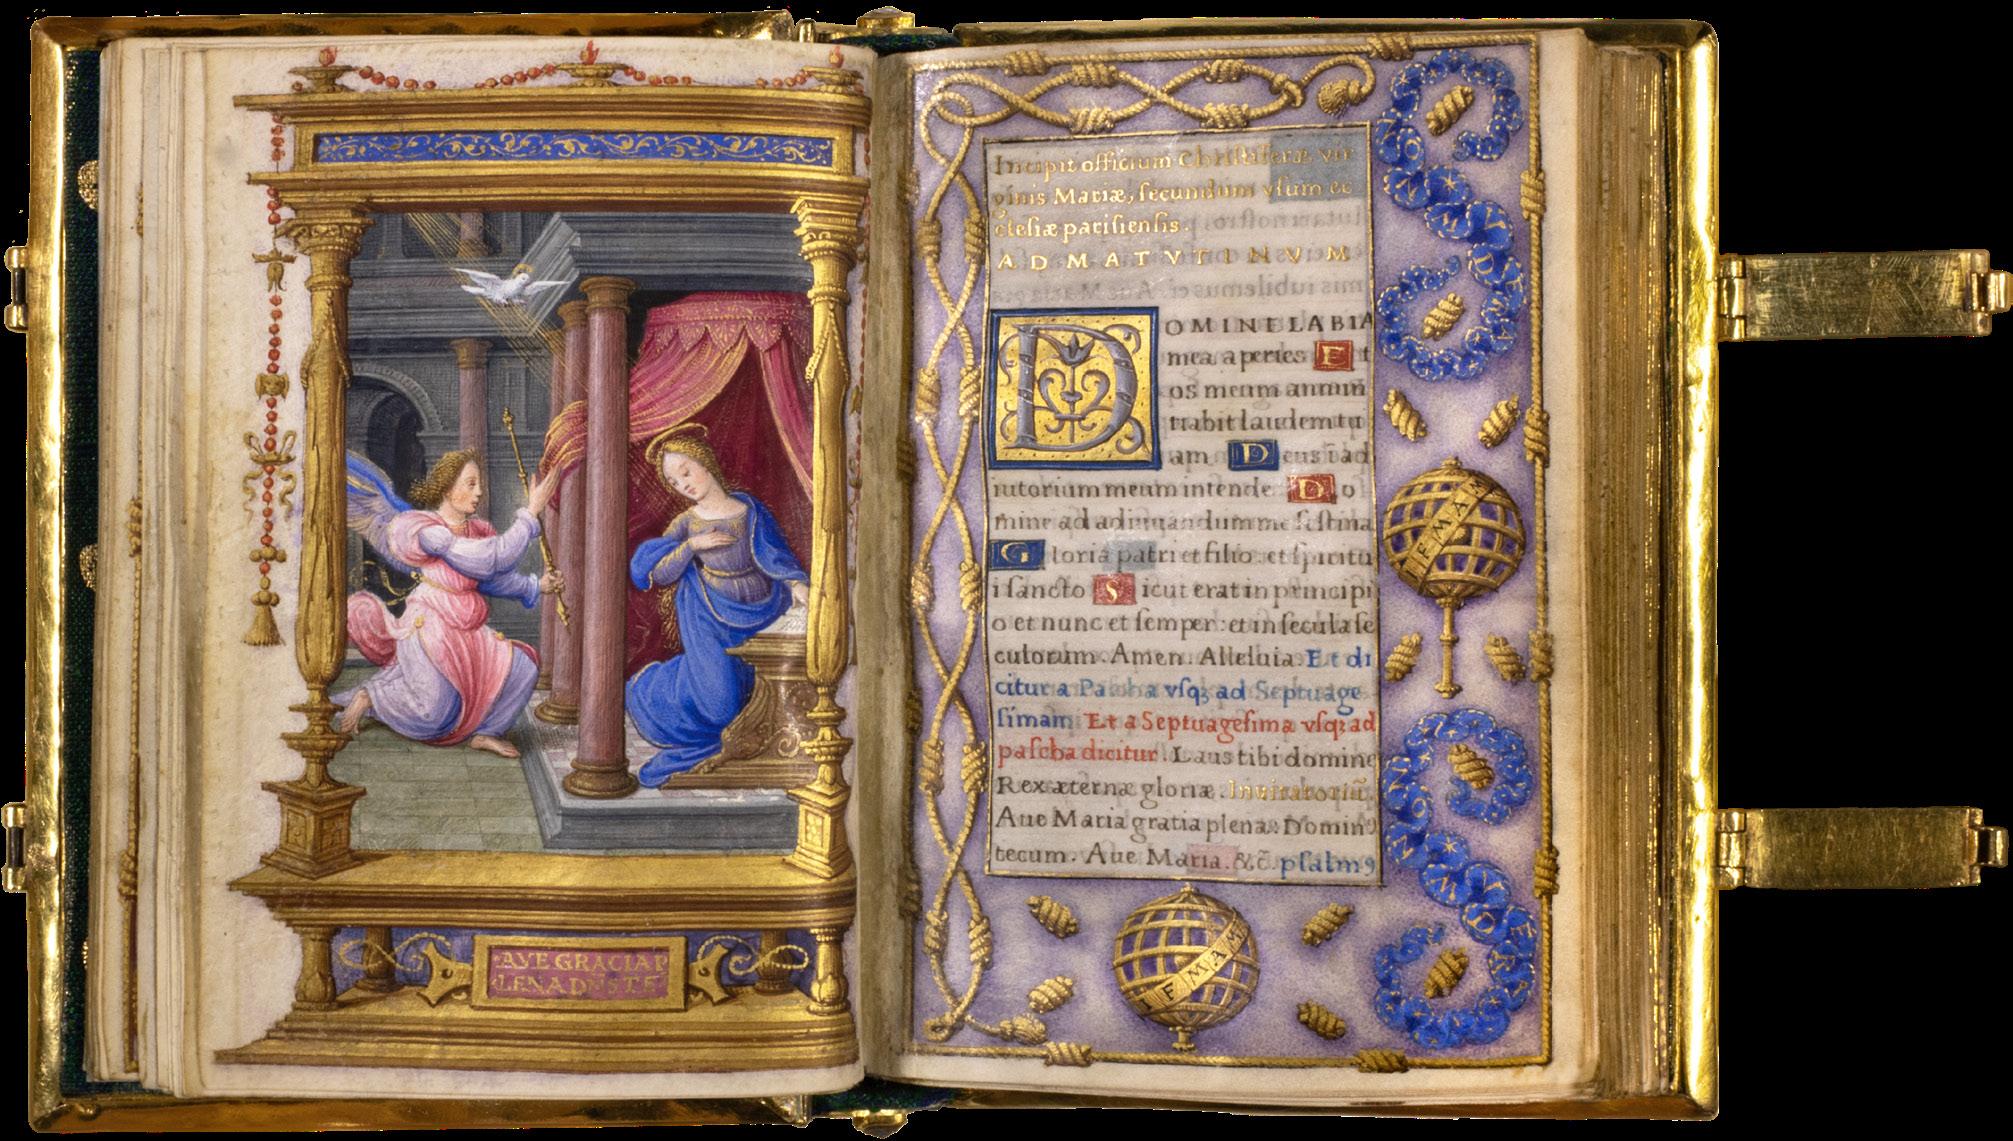 AVE GRACIA P
LENA DNS TE
Incipit officium Christiferæ vir
ginis Mariæ, secundum vsum ec
clesiæ parisiensis.
AD MATVTINVM
DOMINE LABIA
mea aperies Et
os meum annun
tiabit laudem tu
am Deus i ad
iutorium meum intende Do
mine ad adiuuandum me festina
Gloria patri et filio et spiritu
i sancto Sicut erat in principi
o et nunc et semper: et in secula se
culorum. Amen. Alleluia. Et di
citur a Pascha vsqꝫ ad Septuage
simam Et a Septuagesima vsqꝫ ad
pascha dicitur. Laus tibi domine
Rex æternæ gloriæ. Inuitatoriũ.
Aue Maria gratia plena: Dominꝰ
tecum. Aue Maria. &c̃. psalmꝰ